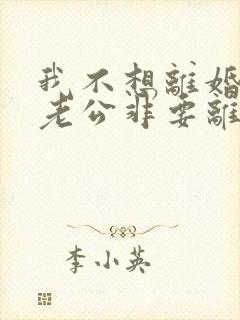 我不想離婚
老公非要離
李小英